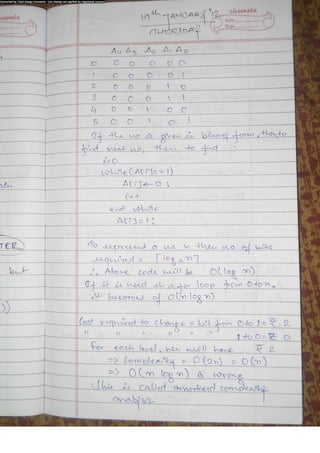 classmate
19th JANUARY '12
THURSDAY
classmate
Date
Page
A4 A3 A2 A1 A0
0 0 0 0 0 0
1 0 0 0 0 1
2 0 0 0 1 0
3 0 0 0 1 1
4 0 0 1 0 0
5 0 0 1 0 1
If the no is given in binary form, then to
find next no, then to find
i=0
while (A[i]==1)
A[i]←0;
i++
end while
A[i]=1;
To represent a no. n then no of bits
required = ⌈log2 n⌉
∴ Above code will be O(log n)
If it is used in a for loop from 0 to n,
it becomes of O(n log n)
Cost required to change a bit from 0 to 1 = ₹ 2
" " " " " " 1 to 0 = ₹ 0
For each level, we will have ₹ 2
⇒ Complexity = O(2n) = O(n)
⇒ O(n log n) is wrong
This is called amortized complexity
analysis.
TER
but